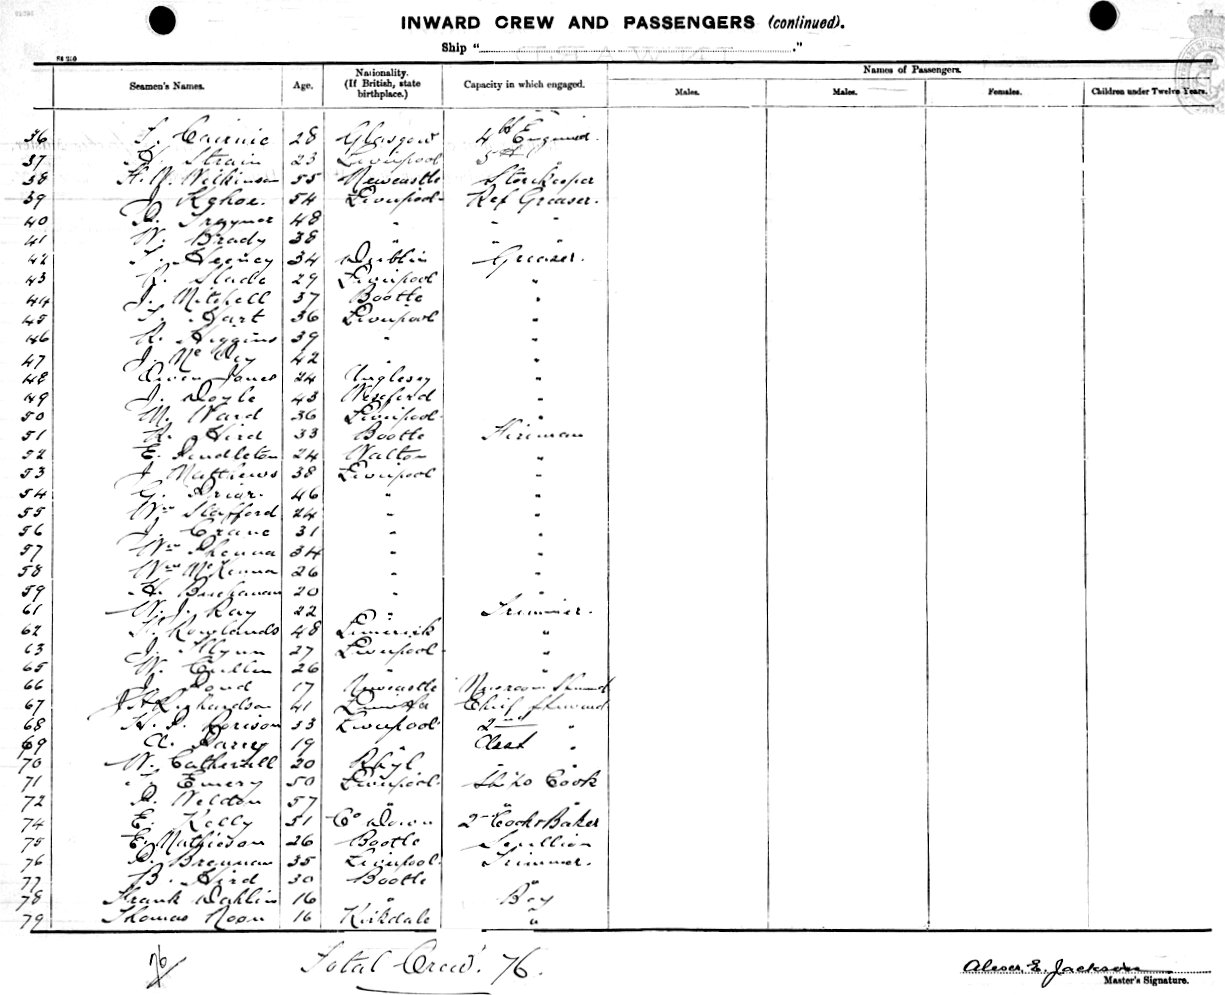 INWARD CREW AND PASSENGERS (continued).
Ship "
Seamen's Names. Age. Nationality. (If British, state birthplace.) Capacity in which engaged. Names of Passengers.
Males. Males. Females. Children under Twelve Years.
36 Cairnie 28 Glasgow 4th Engineer.
37 Strain 23 Liverpool 5th "
38 Wilkinson 55 Newcastle Storekeeper
39 J. Kehoe. 54 Liverpool Ref Greaser.
40 Traynor 48 " " "
41 W. Brady 38 " " "
42 Heeney 34 Dublin Greaser.
43 Slade 29 Liverpool "
44 J. Mitchell 37 Bootle "
45 Hart 36 Liverpool "
46 R. Higgins 39 " "
47 J. 42 " "
48 Owen Jones 24 Anglesey "
49 J. Doyle 43 Wexford "
50 M. Ward 36 Liverpool "
51 R. Hird 33 Bootle Fireman
52 E. Pendleton 24 Walton "
53 J. Matthews 38 Liverpool "
54 G. Briar. 46 " "
55 Wm Stafford 24 " "
56 J. Crane 31 " "
57 Wm 34 " "
58 Wm McKenna 26 " "
59 H. Buchanan 20 " "
61 W. J. Ray 22 " Trimmer.
62 Rowlands 48 Limerick "
63 J. Flynn 27 Liverpool "
65 W. Cullen 26 " "
66 J. 17 Newcastle
67 Richardson 41 Chief Steward
68 53 Liverpool 2nd "
69 A. Parry 19 " Asst "
70 W. 20 Rhyl " "
71 Emery 50 Liverpool Ship's Cook
72 Weldon 57 " " "
74 E. Kelly 51 Co Down 2nd Cook & Baker
75 E. Mathieson 26 Bootle Scullion
76 Brennan 35 Liverpool Trimmer.
77 B. Hird 30 Bootle "
78 Frank Dahlin 16 " Boy
79 Thomas Noon 16 Kirkdale "
76
Total Crew. 76.
Jackson
Master's Signature.